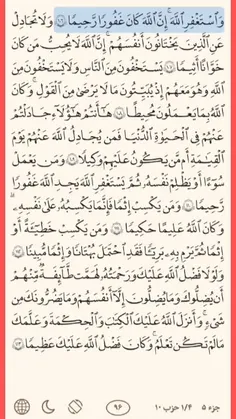 وَٱسْتَغْفِرِ ٱللَّهَ ۖ إِنَّ ٱللَّهَ كَانَ غَفُورًا رَّحِيمًا ١٠٦ وَلَا تُجَٰدِلْ
عَنِ ٱلَّذِينَ يَخْتَانُونَ أَنفُسَهُمْ ۚ إِنَّ ٱللَّهَ لَا يُحِبُّ مَن كَانَ
خَوَّانًا أَثِيمًا ١٠٧ يَسْتَخْفُونَ مِنَ ٱلنَّاسِ وَلَا يَسْتَخْفُونَ مِنَ
ٱللَّهِ وَهُوَ مَعَهُمْ إِذْ يُبَيِّتُونَ مَا لَا يَرْضَىٰ مِنَ ٱلْقَوْلِ ۚ وَكَانَ
ٱللَّهُ بِمَا يَعْمَلُونَ مُحِيطًا ١٠٨ هَٰٓأَنتُمْ هَٰٓؤُلَآءِ جَٰدَلْتُمْ
عَنْهُمْ فِى ٱلْحَيَوٰةِ ٱلدُّنْيَا فَمَن يُجَٰدِلُ ٱللَّهَ عَنْهُمْ يَوْمَ
ٱلْقِيَٰمَةِ أَم مَّن يَكُونُ عَلَيْهِمْ وَكِيلًا ١٠٩ وَمَن يَعْمَلْ
سُوٓءًا أَوْ يَظْلِمْ نَفْسَهُۥ ثُمَّ يَسْتَغْفِرِ ٱللَّهَ يَجِدِ ٱللَّهَ غَفُورًا
رَّحِيمًا ١١٠ وَمَن يَكْسِبْ إِثْمًا فَإِنَّمَا يَكْسِبُهُۥ عَلَىٰ نَفْسِهِۦ ۚ
وَكَانَ ٱللَّهُ عَلِيمًا حَكِيمًا ١١١ وَمَن يَكْسِبْ خَطِيٓـَٔةً أَوْ
إِثْمًا ثُمَّ يَرْمِ بِهِۦ بَرِيٓـًٔا فَقَدِ ٱحْتَمَلَ بُهْتَٰنًا وَإِثْمًا مُّبِينًا ١١٢
وَلَوْلَا فَضْلُ ٱللَّهِ عَلَيْكَ وَرَحْمَتُهُۥ لَهَمَّت طَّآئِفَةٌ مِّنْهُمْ
أَن يُضِلُّوكَ وَمَا يُضِلُّونَ إِلَّآ أَنفُسَهُمْ ۖ وَمَا يَضُرُّونَكَ مِن
شَىْءٍ ۚ وَأَنزَلَ ٱللَّهُ عَلَيْكَ ٱلْكِتَٰبَ وَٱلْحِكْمَةَ وَعَلَّمَكَ
مَا لَمْ تَكُن تَعْلَمُ ۚ وَكَانَ فَضْلُ ٱللَّهِ عَلَيْكَ عَظِيمًا ١١٣
جزء ۵ ۱/۴ حزب ۱۰ ۹۶